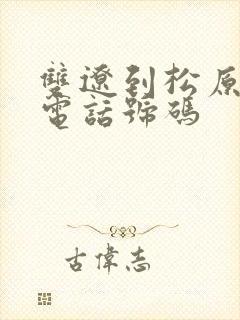 雙遼到松原
電話號碼
古偉志